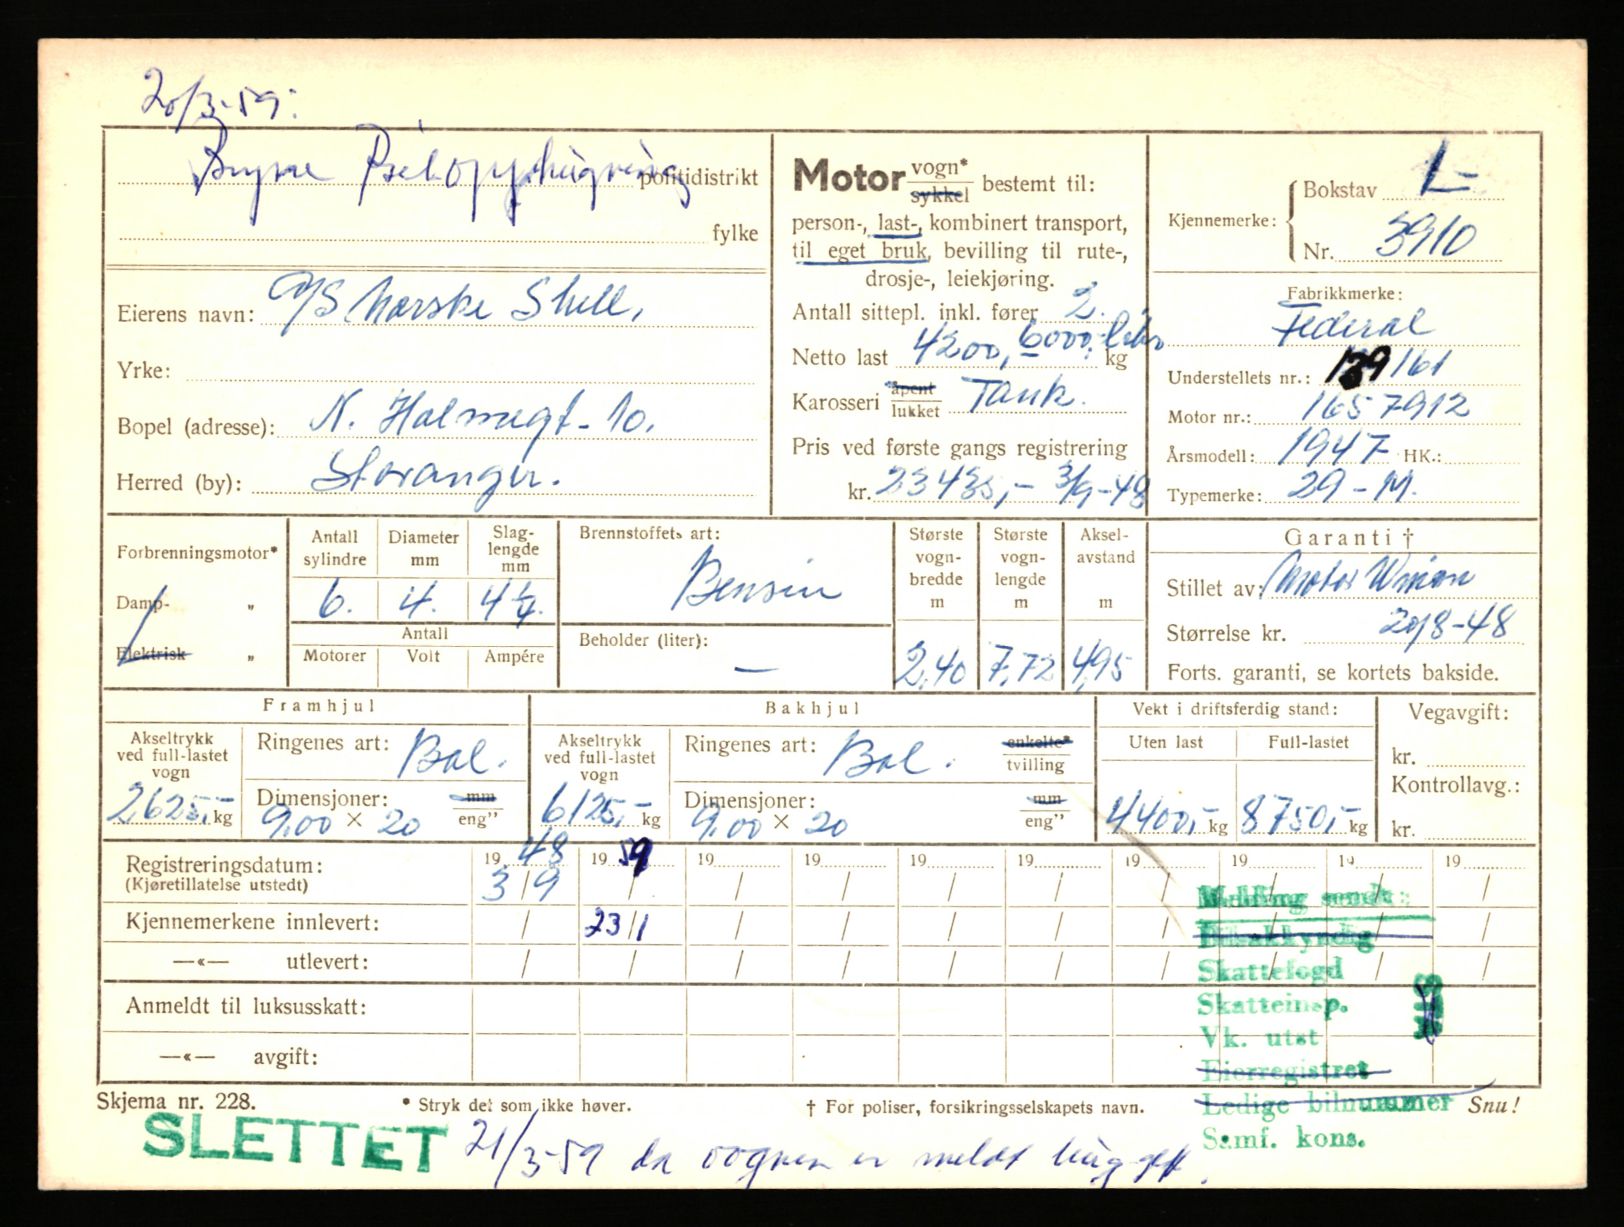 20/3-59:
Bryne Bilopphugning
politidistrikt
fylke
Eierens navn: A/S Norske Shell,
Yrke:
Bopel (adresse): N. Holmegt. 10.
Herred (by): Stavanger.
Motor vogn* sykkel bestemt til:
person-, last-, kombinert transport,
til eget bruk, bevilling til rute-,
drosje-, leiekjøring.
Antall sittepl. inkl. fører 2.
Netto last 4200, 6000 liter kg
Karosseri åpent lukket Tank.
Pris ved første gangs registrering
kr. 23435,- 3/9-48
Kjennemerke: Bokstav L-
Nr. 3910
Fabrikkmerke:
Federal
Understellets nr.: 139161
Motor nr.: 1657912
Årsmodell: 1947 HK.:
Typemerke: 29-M.
Forbrenningsmotor*
Damp- "
Elektrisk "
Antall sylindre 6.
Diameter mm 4.
Slaglengde mm 4 1/4.
Antall
Motorer Volt Ampére
Brennstoffets art:
Bensin
Beholder (liter):
—
Største vognbredde m 2,40
Største vognlengde m 7,72
Akselavstand m 4,95
Garanti †
Stillet av: Motor Union
Størrelse kr. 20/8-48
Forts. garanti, se kortets bakside.
Framhjul
Akseltrykk ved full-lastet vogn 2625,- kg
Ringenes art: Bal.
Dimensjoner: mm
9.00 × 20 eng"
Bakhjul
Akseltrykk ved full-lastet vogn 6125,- kg
Ringenes art: Bal. enkelte* tvilling
Dimensjoner: mm
9.00 × 20 eng"
Vekt i driftsferdig stand:
Uten last Full-lastet
4400,- kg 8750,- kg
Vegavgift:
kr.
Kontrollavg.:
kr.
Registreringsdatum: 19 48 19 59 19 19 19 19 19 19 19 19
(Kjøretillatelse utstedt) 3/9 / / / / / / / / /
Kjennemerkene innlevert: / 23/1 / / / / / / / /
—«— utlevert: / / / / / / / / / /
Anmeldt til luksusskatt:
—«— avgift:
Melding sendt:
Bilsakkyndig
Skattefogd
Skatteinsp.
Vk. utst
Eierregistret
Ledige bilnummer
Samf. kons.
Skjema nr. 228.
* Stryk det som ikke høver.
† For poliser, forsikringsselskapets navn.
Snu!
SLETTET 21/3-59 da vognen er meldt hugget.